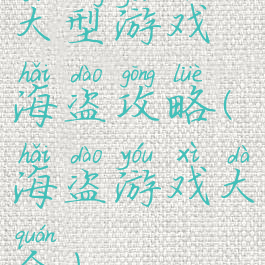 大型游戏
hǎi dào gōng lüè
海盗攻略(
hǎi dào yóu xì dà
海盗游戏大
quán